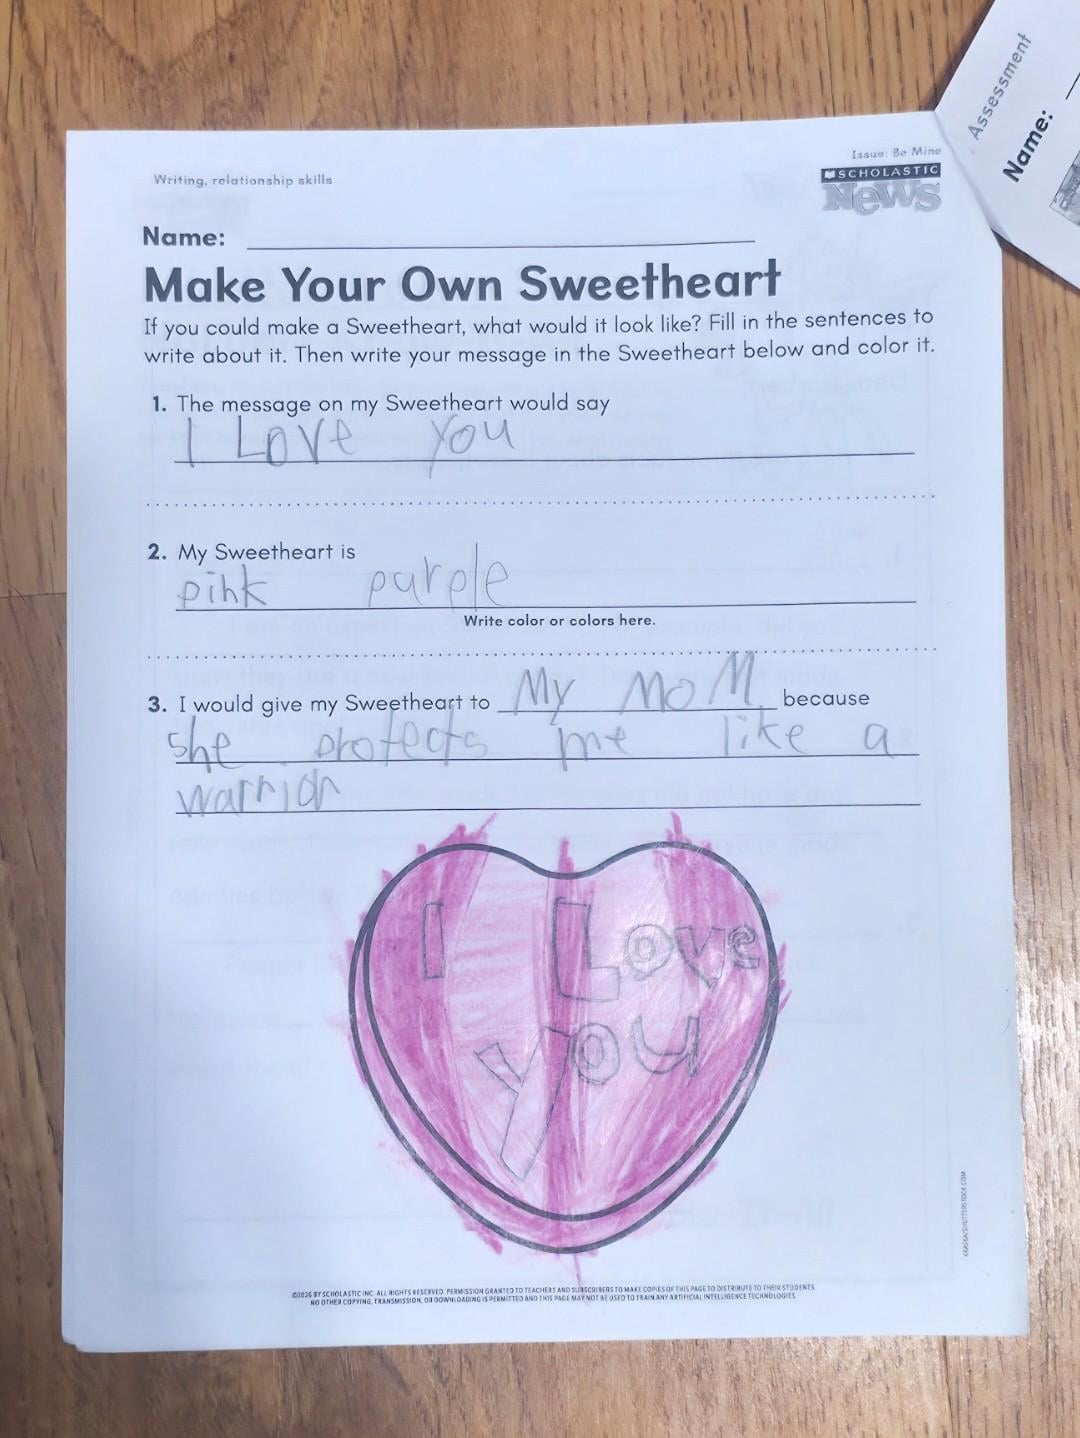 Assessment
Name:
Issue: Be Mine
SCHOLASTIC
NEWS
Writing, relationship skills
Name:
Make Your Own Sweetheart
If you could make a Sweetheart, what would it look like? Fill in the sentences to
write about it. Then write your message in the Sweetheart below and color it.
1. The message on my Sweetheart would say
I Love you
2. My Sweetheart is
pink purple
Write color or colors here.
3. I would give my Sweetheart to My MoM because
she protects me like a
warrior
I Love
you
©2026 BY SCHOLASTIC INC. ALL RIGHTS RESERVED. PERMISSION GRANTED TO TEACHERS AND SUBSCRIBERS TO MAKE COPIES OF THIS PAGE TO DISTRIBUTE TO THEIR STUDENTS
NO OTHER COPYING, TRANSMISSION, OR DOWNLOADING IS PERMITTED AND THIS PAGE MAY NOT BE USED TO TRAIN ANY ARTIFICIAL INTELLIGENCE TECHNOLOGIES